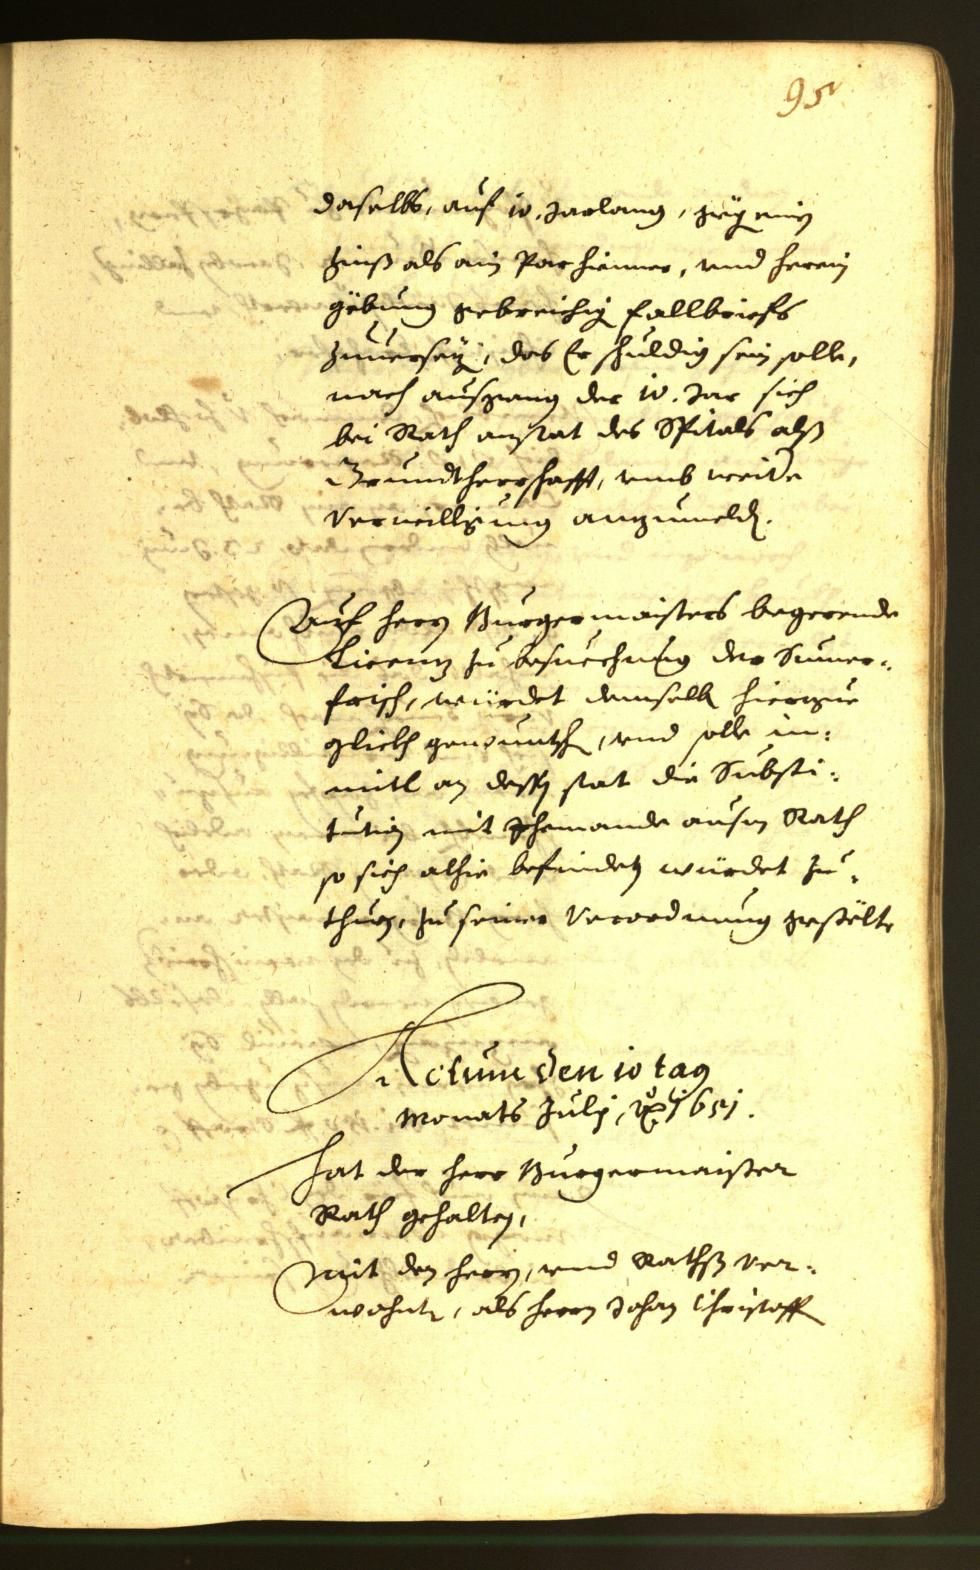 95
daselbs, auf 10. Jarlang, gegen
Zinß als ain Par hienner, und herein
gebung gebreichig Fallbriefs
zuuersechen, das Er schuldig sein solle,
nach ausgang der 10. Jar sich
bei Rath anstat des Spitals alß
Grundtherrschafft, umb weite
Verwilligung anzumelden.
Auf herrn Burgermaisters begerende
Licenz zu besuechung der Sumer-
frisch, würdet demselben hierzue
glickh gewuntschen, und solle in-
mitl an dessen stat die Substi-
tution mit Jhemande ausm Rath
so sich alhie befinden würdet zu
thuen, zu seiner Verordnung gestelt
Actum den 10 tag
Monats Julij, 1651.
Hat der herr Burgermaister
Rath gehalten,
Mit den herrn, und Rathß Ver-
wohnte, als herrn Johan Christoff